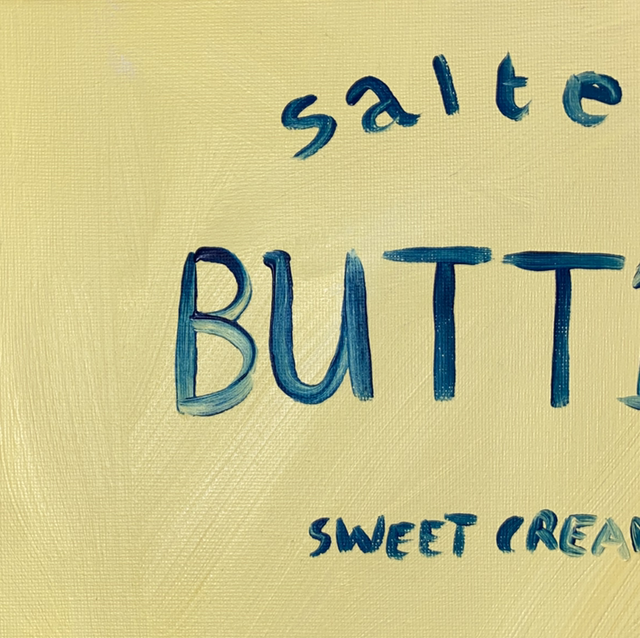 salte
BUTT
SWEET CREA